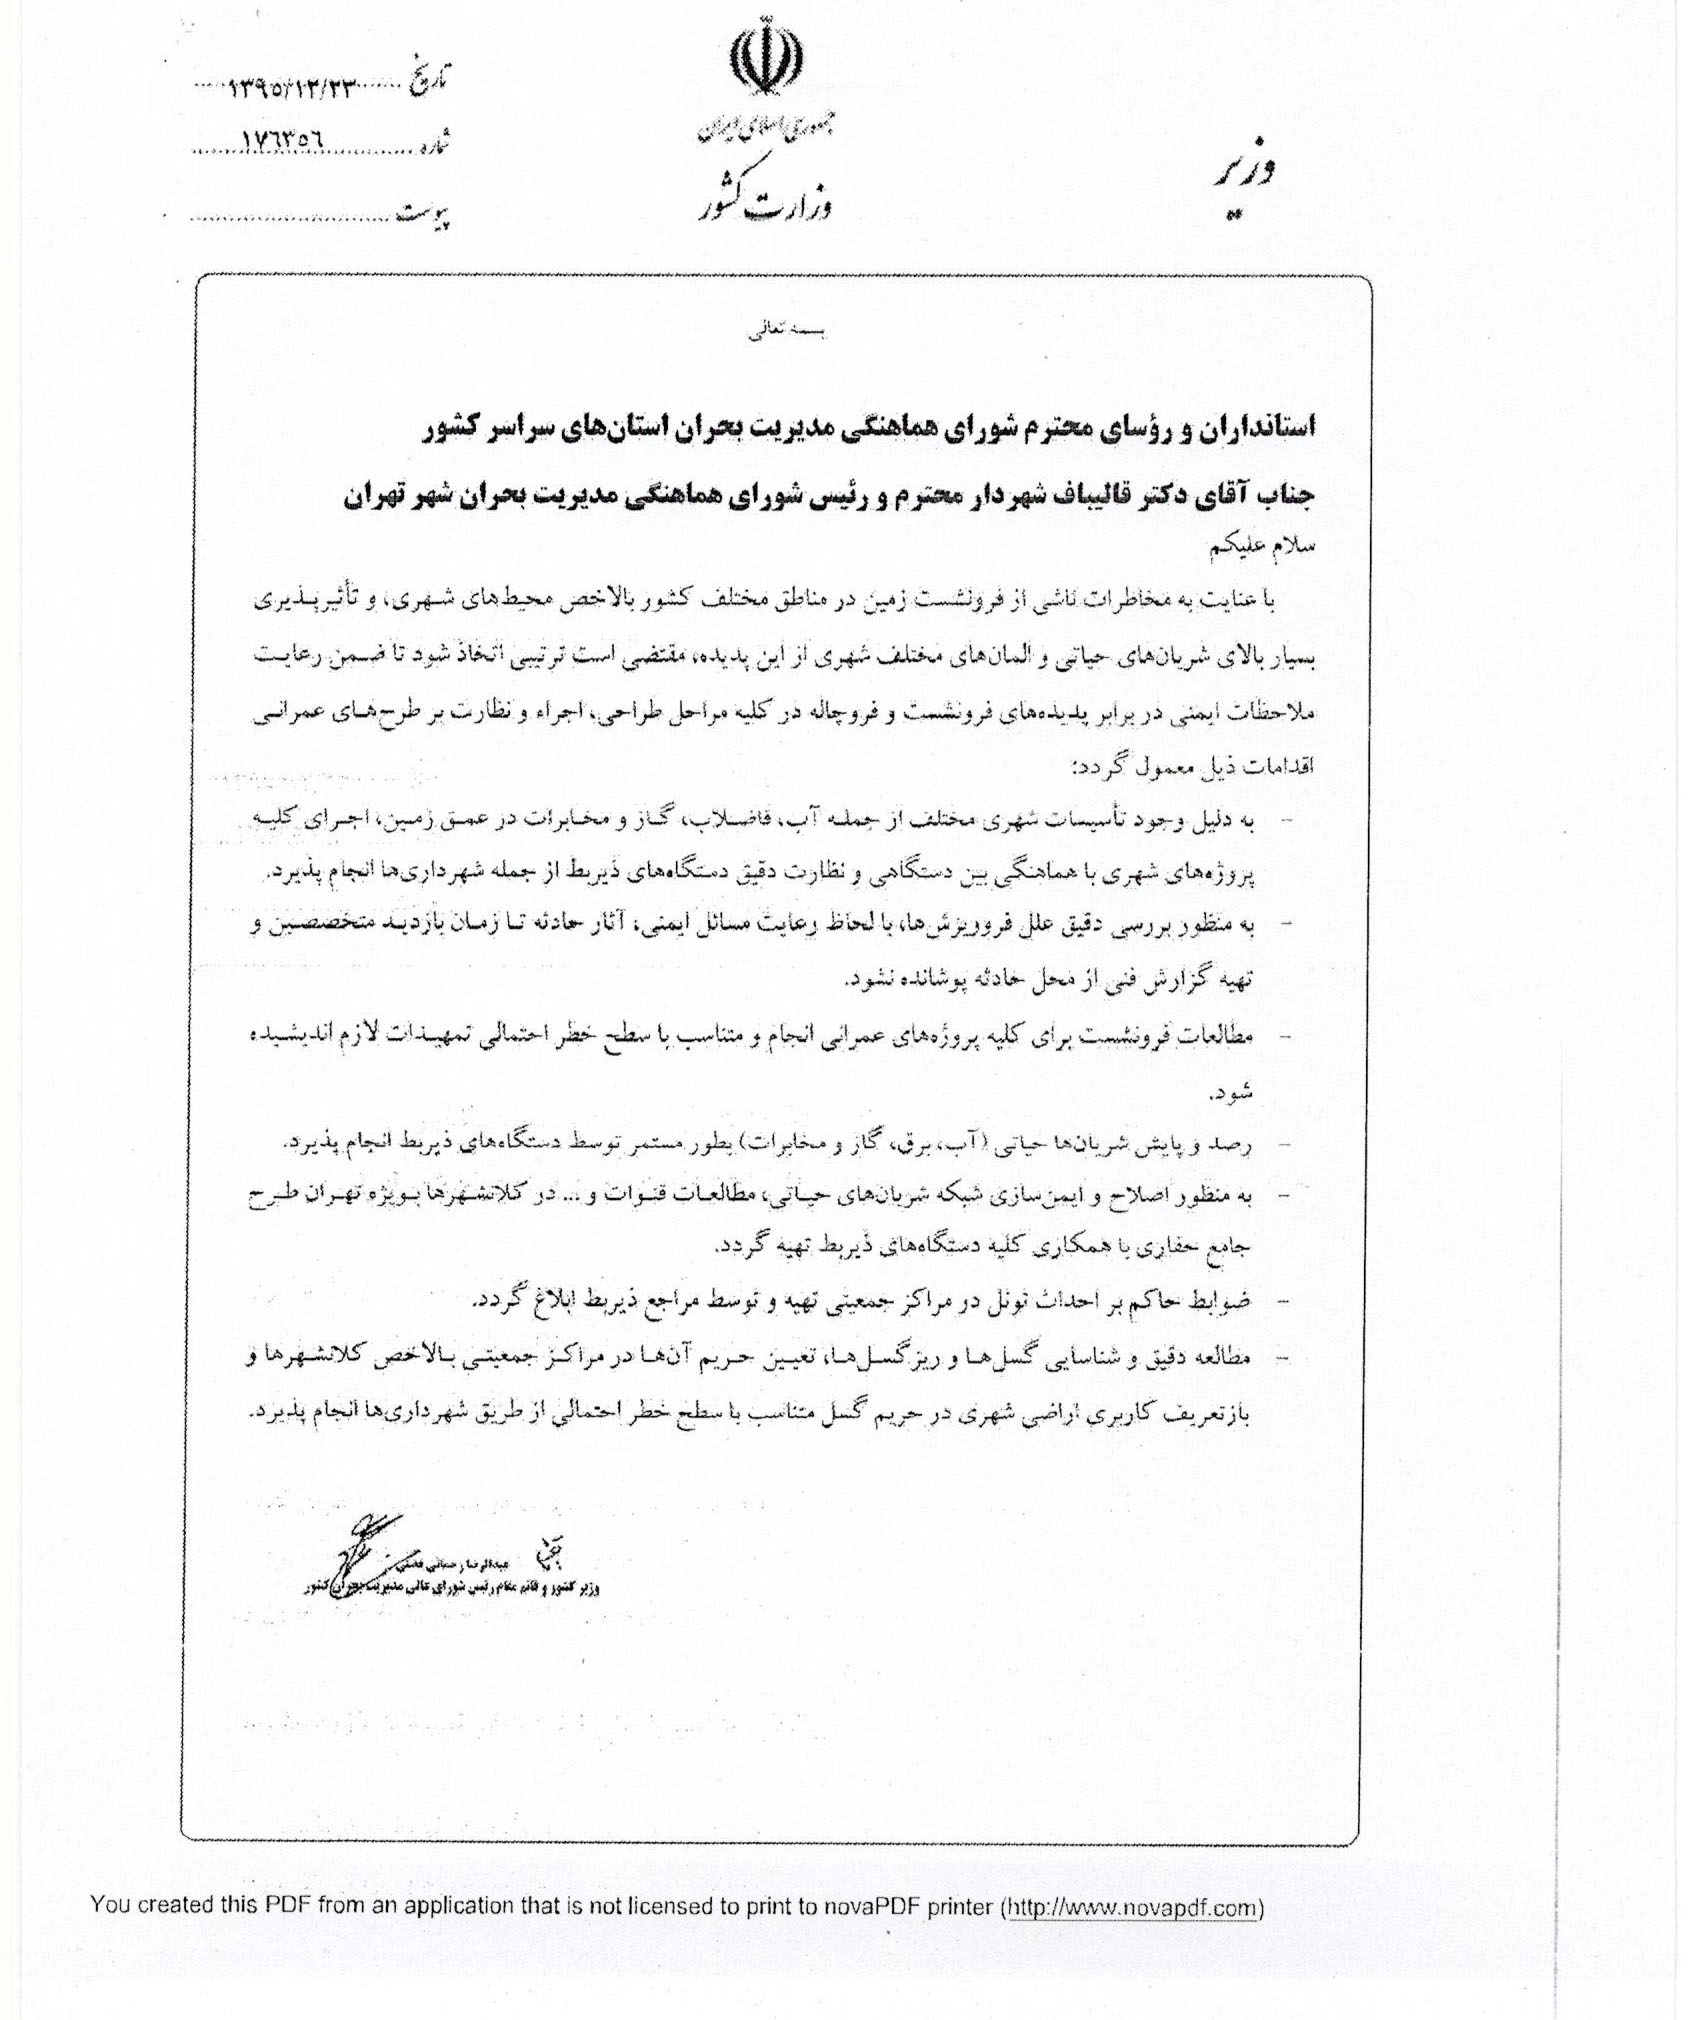 جمهوری اسلامی ایران
وزارت کشور
وزیر
تاریخ ۱۳۹۵/۱۲/۲۳
شماره ۱۷۶۳۵۶
پیوست
بسمه تعالی
استانداران و رؤسای محترم شورای هماهنگی مدیریت بحران استان‌های سراسر کشور
جناب آقای دکتر قالیباف شهردار محترم و رئیس شورای هماهنگی مدیریت بحران شهر تهران
سلام علیکم
با عنایت به مخاطرات ناشی از فرونشست زمین در مناطق مختلف کشور بالاخص محیط‌های شهری، و تأثیرپذیری
بسیار بالای شریان‌های حیاتی و المان‌های مختلف شهری از این پدیده، مقتضی است ترتیبی اتخاذ شود تا ضمن رعایت
ملاحظات ایمنی در برابر پدیده‌های فرونشست و فروچاله در کلیه مراحل طراحی، اجراء و نظارت بر طرح‌های عمرانی
اقدامات ذیل معمول گردد:
- به دلیل وجود تأسیسات شهری مختلف از جمله آب، فاضلاب، گاز و مخابرات در عمق زمین، اجرای کلیه
پروژه‌های شهری با هماهنگی بین دستگاهی و نظارت دقیق دستگاه‌های ذیربط از جمله شهرداری‌ها انجام پذیرد.
- به منظور بررسی دقیق علل فروریزش‌ها، با لحاظ رعایت مسائل ایمنی، آثار حادثه تا زمان بازدید متخصصین و
تهیه گزارش فنی از محل حادثه پوشانده نشود.
- مطالعات فرونشست برای کلیه پروژه‌های عمرانی انجام و متناسب با سطح خطر احتمالی تمهیدات لازم اندیشیده
شود.
- رصد و پایش شریان‌ها حیاتی (آب، برق، گاز و مخابرات) بطور مستمر توسط دستگاه‌های ذیربط انجام پذیرد.
- به منظور اصلاح و ایمن‌سازی شبکه شریان‌های حیاتی، مطالعات قنوات و ... در کلانشهرها بویژه تهران طرح
جامع حفاری با همکاری کلیه دستگاه‌های ذیربط تهیه گردد.
- ضوابط حاکم بر احداث تونل در مراکز جمعیتی تهیه و توسط مراجع ذیربط ابلاغ گردد.
- مطالعه دقیق و شناسایی گسل‌ها و ریزگسل‌ها، تعیین حریم آن‌ها در مراکز جمعیتی بالاخص کلانشهرها و
بازتعریف کاربری اراضی شهری در حریم گسل متناسب با سطح خطر احتمالی از طریق شهرداری‌ها انجام پذیرد.
عبدالرضا رحمانی فضلی
وزیر کشور و قائم مقام رئیس شورای عالی مدیریت بحران کشور
You created this PDF from an application that is not licensed to print to novaPDF printer (http://www.novapdf.com)